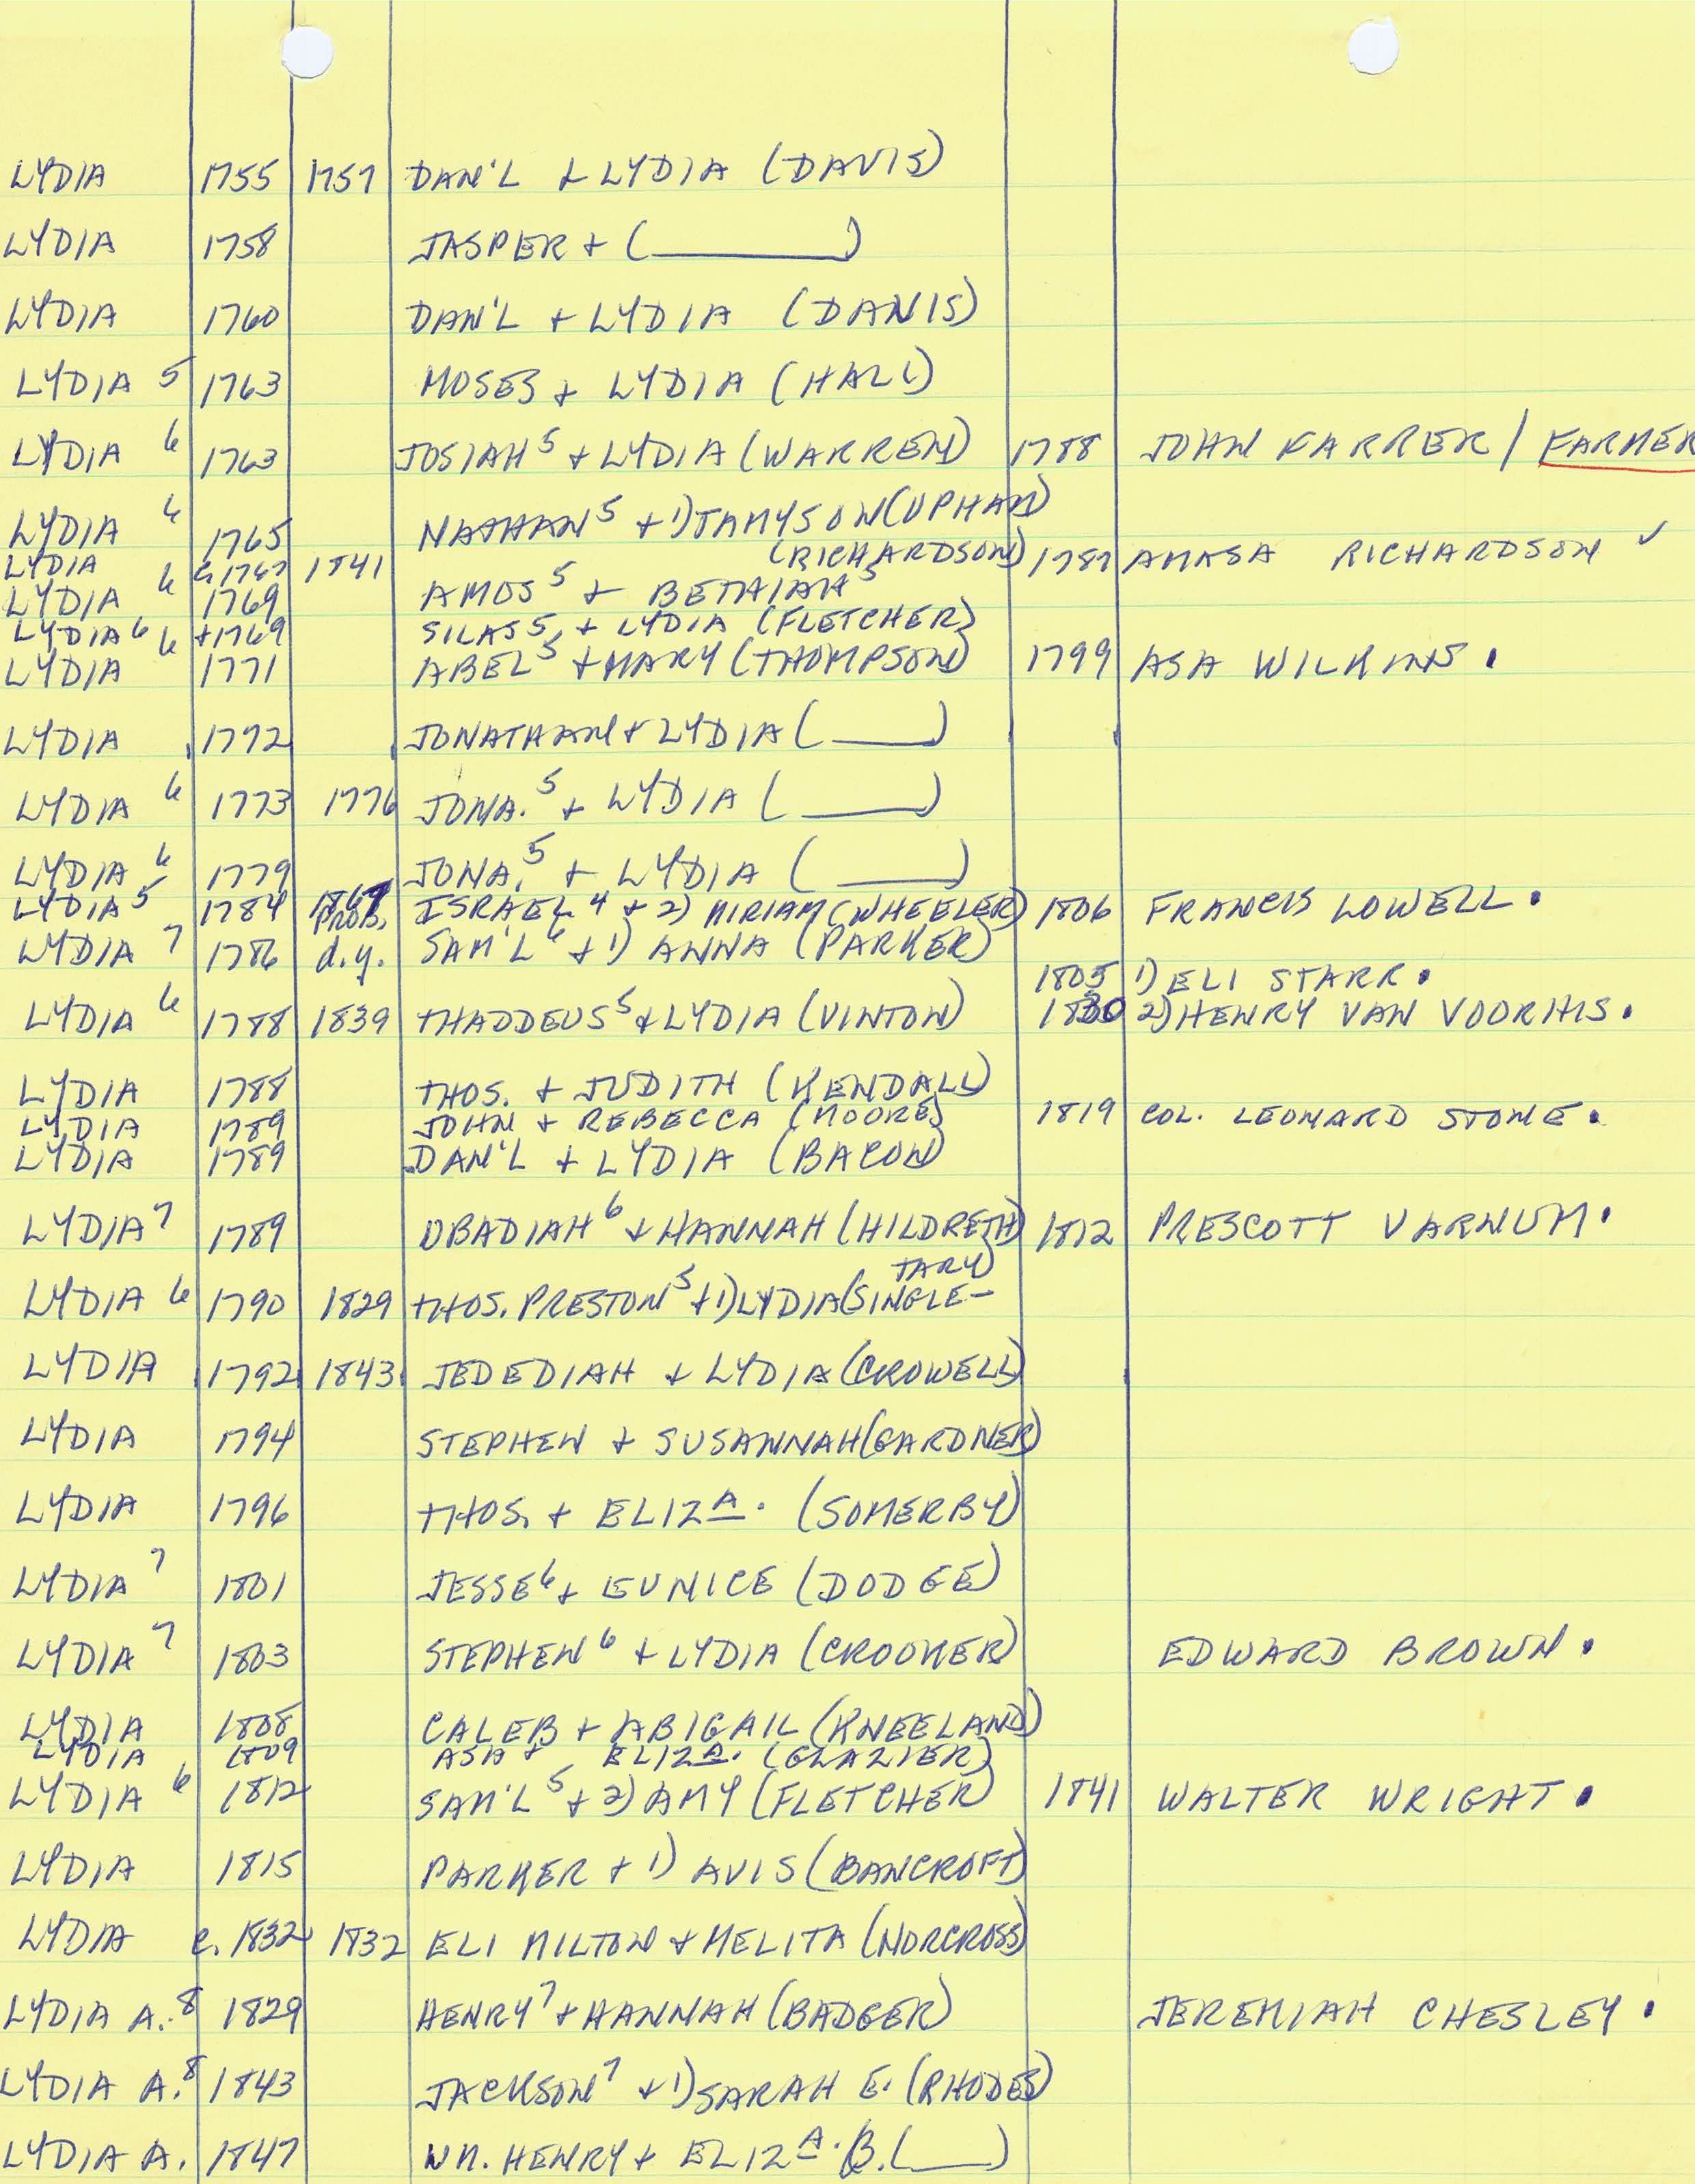 LYDIA 1755 1757 DAN'L + LYDIA (DAVIS)
LYDIA 1758 JASPER + (______)
LYDIA 1760 DAN'L + LYDIA (DANIS)
LYDIA 5 1763 MOSES + LYDIA (HALL)
LYDIA 6 1763 JOSIAH 5 + LYDIA (WARREN) 1788 JOHN FARRER / FARMER
LYDIA 6 1765 NATHAN 5 + 1) TAMYSON (UPHAM)
LYDIA 1767 1841 (RICHARDSON) 1787 AMASA RICHARDSON ✓
LYDIA 6 1769 AMOS 5 + BETHIAH 5
LYDIA 6 +1769 SILAS 5 + LYDIA (FLETCHER)
LYDIA 6 1771 ABEL 5 + MARY (THOMPSON) 1799 ASA WILKINS.
LYDIA 1772 JONATHAN + LYDIA (____)
LYDIA 6 1773 1776 JONA. 5 + LYDIA (____)
LYDIA 6 1779 JONA. 5 + LYDIA (____)
LYDIA 5 1784 1867 PROB. ISRAEL 4 + 2) MIRIAM (WHEELER) 1806 FRANCIS LOWELL.
LYDIA 7 1786 d.y. SAM'L 6 + 1) ANNA (PARKER)
1805 1) ELI STARR.
LYDIA 6 1788 1839 THADDEUS 5 + LYDIA (VINTON) 1830 2) HENRY VAN VOORHIS.
LYDIA 1788 THOS. + JUDITH (KENDALL)
LYDIA 1789 JOHN + REBECCA (MOORE) 1819 COL. LEONARD STONE.
LYDIA 1789 DAN'L + LYDIA (BACON)
LYDIA 7 1789 OBADIAH 6 + HANNAH (HILDRETH) 1812 PRESCOTT VARNUM.
TARY)
LYDIA 6 1790 1829 THOS. PRESTON 5 + 1) LYDIA (SINGLE-
LYDIA 1792 1843 JEDEDIAH + LYDIA (CROWELL)
LYDIA 1794 STEPHEN + SUSANNAH (GARDNER)
LYDIA 1796 THOS. + ELIZA. (SOMERBY)
LYDIA 7 1801 JESSE 6 + EUNICE (DODGE)
LYDIA 7 1803 STEPHEN 6 + LYDIA (CROOKER) EDWARD BROWN.
LYDIA 1808 CALEB + ABIGAIL (KNEELAND)
LYDIA 1809 ASA + ELIZA. (GLAZIER)
LYDIA 6 1812 SAM'L 5 + 2) AMY (FLETCHER) 1841 WALTER WRIGHT.
LYDIA 1815 PARKER + 1) AVIS (BANCROFT)
LYDIA c. 1832 1832 ELI MILTON + MELITA (NORCROSS)
LYDIA A. 8 1829 HENRY 7 + HANNAH (BADGER) JEREMIAH CHESLEY.
LYDIA A. 8 1843 JACKSON 7 + 1) SARAH E. (RHODES)
LYDIA A. 1847 WM. HENRY + ELIZA. B. (____)